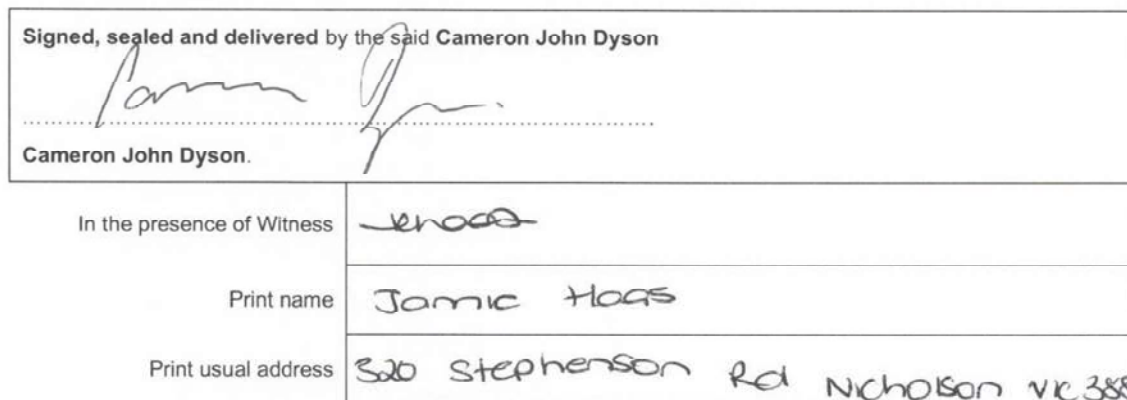 Signed, sealed and delivered by the said Cameron John Dyson
Cameron John Dyson.
In the presence of Witness
Print name Jamie Haas
Print usual address 320 Stephenson Rd Nicholson VIC 388